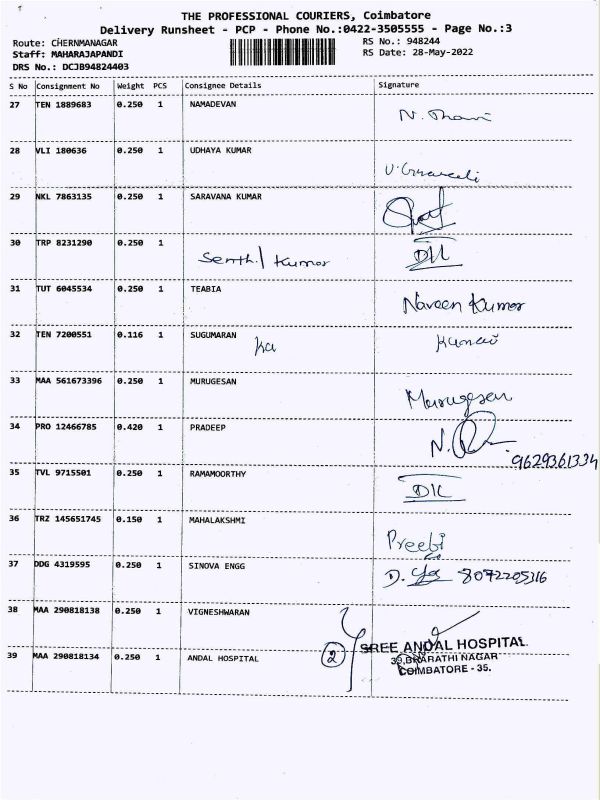 THE PROFESSIONAL COURIERS, Coimbatore
Delivery Runsheet - PCP - Phone No.:0422-3505555 - Page No.:3
Route: CHERNMANAGAR RS No.: 948244
Staff: MAHARAJAPANDI RS Date: 28-May-2022
DRS No.: DCJB94824403
S No Consignment No Weight PCS Consignee Details Signature
27 TEN 1889683 0.250 1 NAMADEVAN
28 VLI 180636 0.250 1 UDHAYA KUMAR
29 NKL 7863135 0.250 1 SARAVANA KUMAR
30 TRP 8231290 0.250 1
Senthil Kumar
31 TUT 6045534 0.250 1 TEABIA
Naveen Kumar
32 TEN 7200551 0.116 1 SUGUMARAN
Ka
33 MAA 561673396 0.250 1 MURUGESAN
Murugesan
34 PRO 12466785 0.420 1 PRADEEP
9629361334
35 TVL 9715501 0.250 1 RAMAMOORTHY
36 TRZ 145651745 0.150 1 MAHALAKSHMI
37 DDG 4319595 0.250 1 SINOVA ENGG
8072205316
38 MAA 290818138 0.250 1 VIGNESHWARAN
39 MAA 290818134 0.250 1 ANDAL HOSPITAL 2
SREE ANDAL HOSPITAL
39, BHARATHI NAGAR
COIMBATORE - 35.